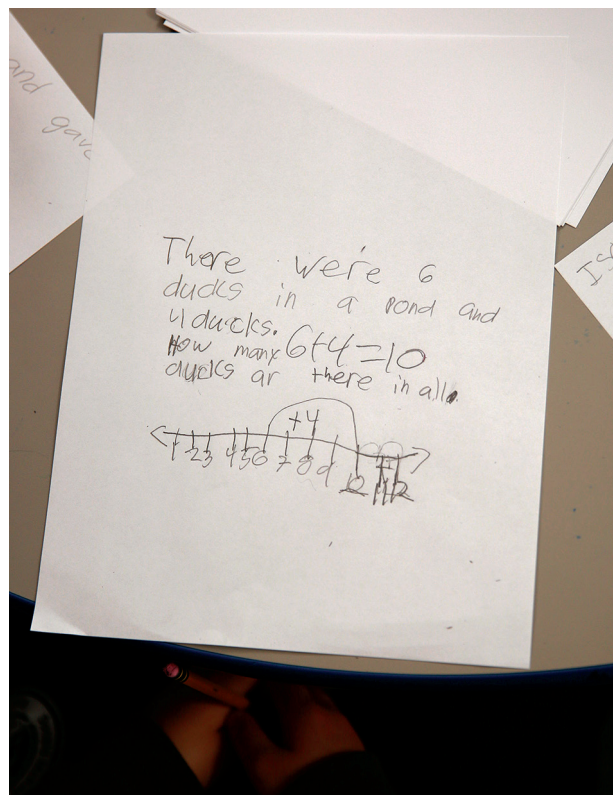 and
gave
There were 6
ducks in a pond and
4 ducks.
How many 6+4=10
ducks ar there in all.
+4
1 2 3 4 5 6 7 8 9 10 11 12